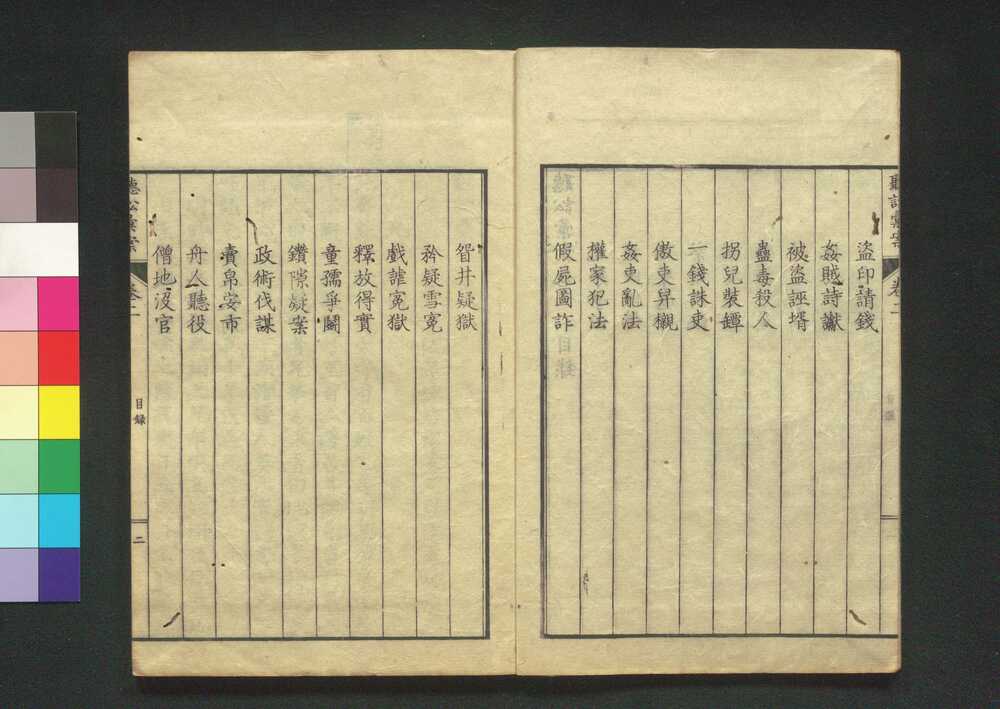 盜印請錢
姦賊詩讞
被盜誣壻
蠱毒殺人
拐兒裝罈
一錢誅吏
傲吏舁櫬
姦吏亂法
權家犯法
假屍圖詐
眢井疑獄
矜疑雪冤
戲謔冤獄
釋放得實
童孺爭鬪
鑽隙疑案
政術伐謀
賣帛安市
舟人聽役
僧地沒官
聽訟彙案
卷二
目録
二